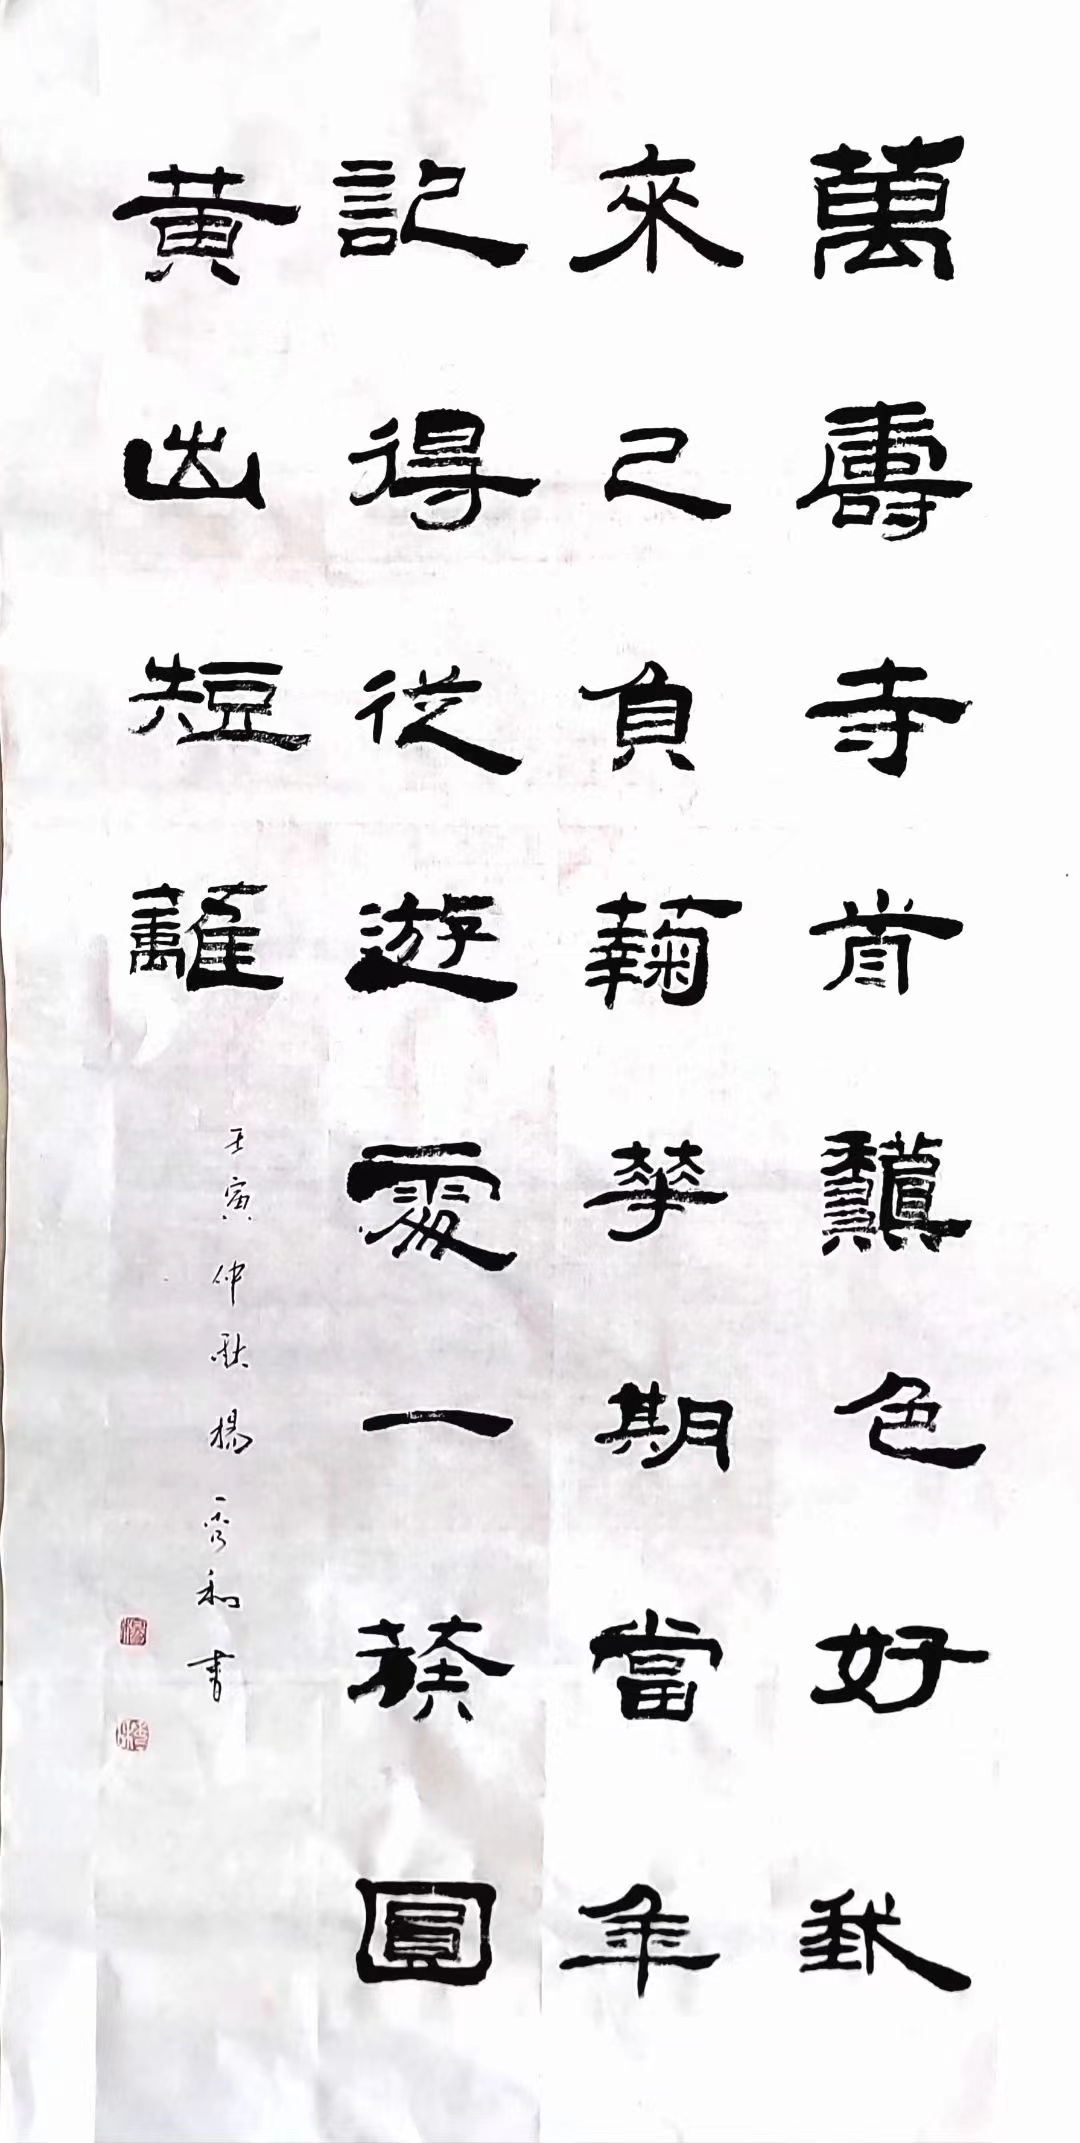 萬壽寺色好秋
來已負鞠華期當年
記得從遊處一蔟圓
黃出短籬
壬寅仲秋楊秀和書